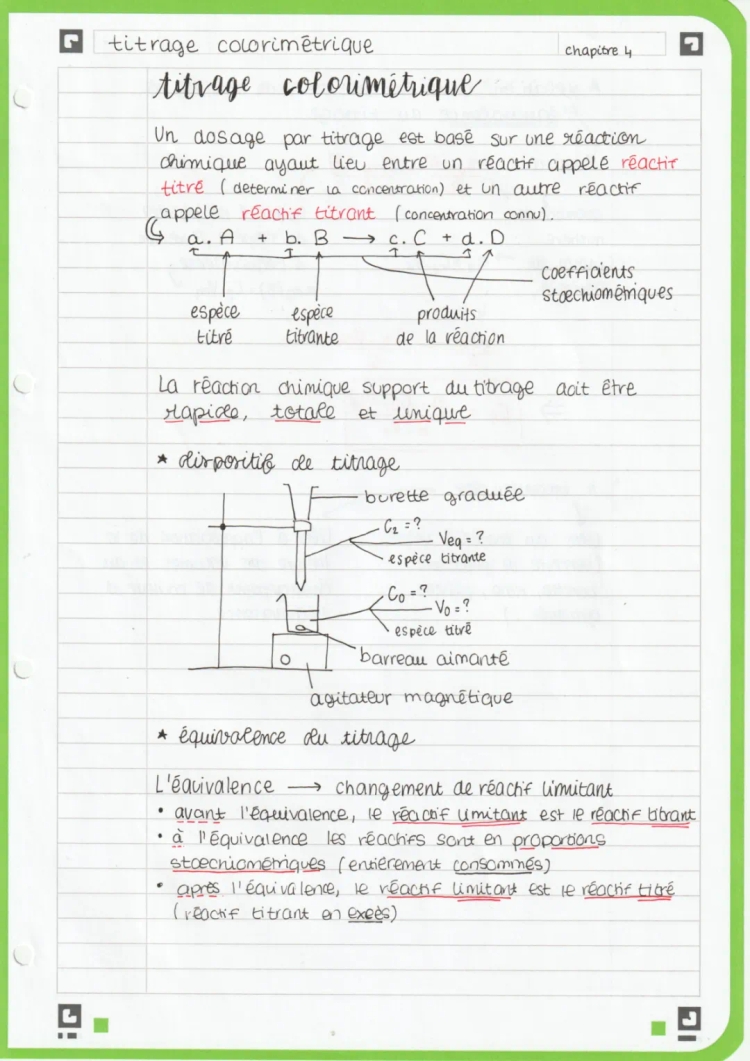 titrage colorimétrique
chapitre 4
titrage colorimétrique
Un dosage par titrage est basé sur une réaction
chimique ayant lieu entre un réactif appelé réactif
titré (determiner la concentration) et un autre réactif
appelé réactif titrant (concentration connu).
a. A + b. B → c. C + d. D
coefficients
stoechiométriques
espèce titré
espèce titrante
produits de la réaction
La réaction chimique support du titrage doit être
rapide, totale et unique
* dispositif de titrage
burette graduée
C2 = ?
Veq = ?
espèce titrante
C0 = ?
V0 = ?
espèce titré
barreau aimanté
agitateur magnétique
* équivalence du titrage
L'équivalence → changement de réactif limitant
• avant l'équivalence, le réactif limitant est le réactif titrant
• à l'équivalence les réactifs sont en proportions
stoechiométriques (entièrement consommés)
• après l'équivalence, le réactif limitant est le réactif titré
(réactif titrant en excès)